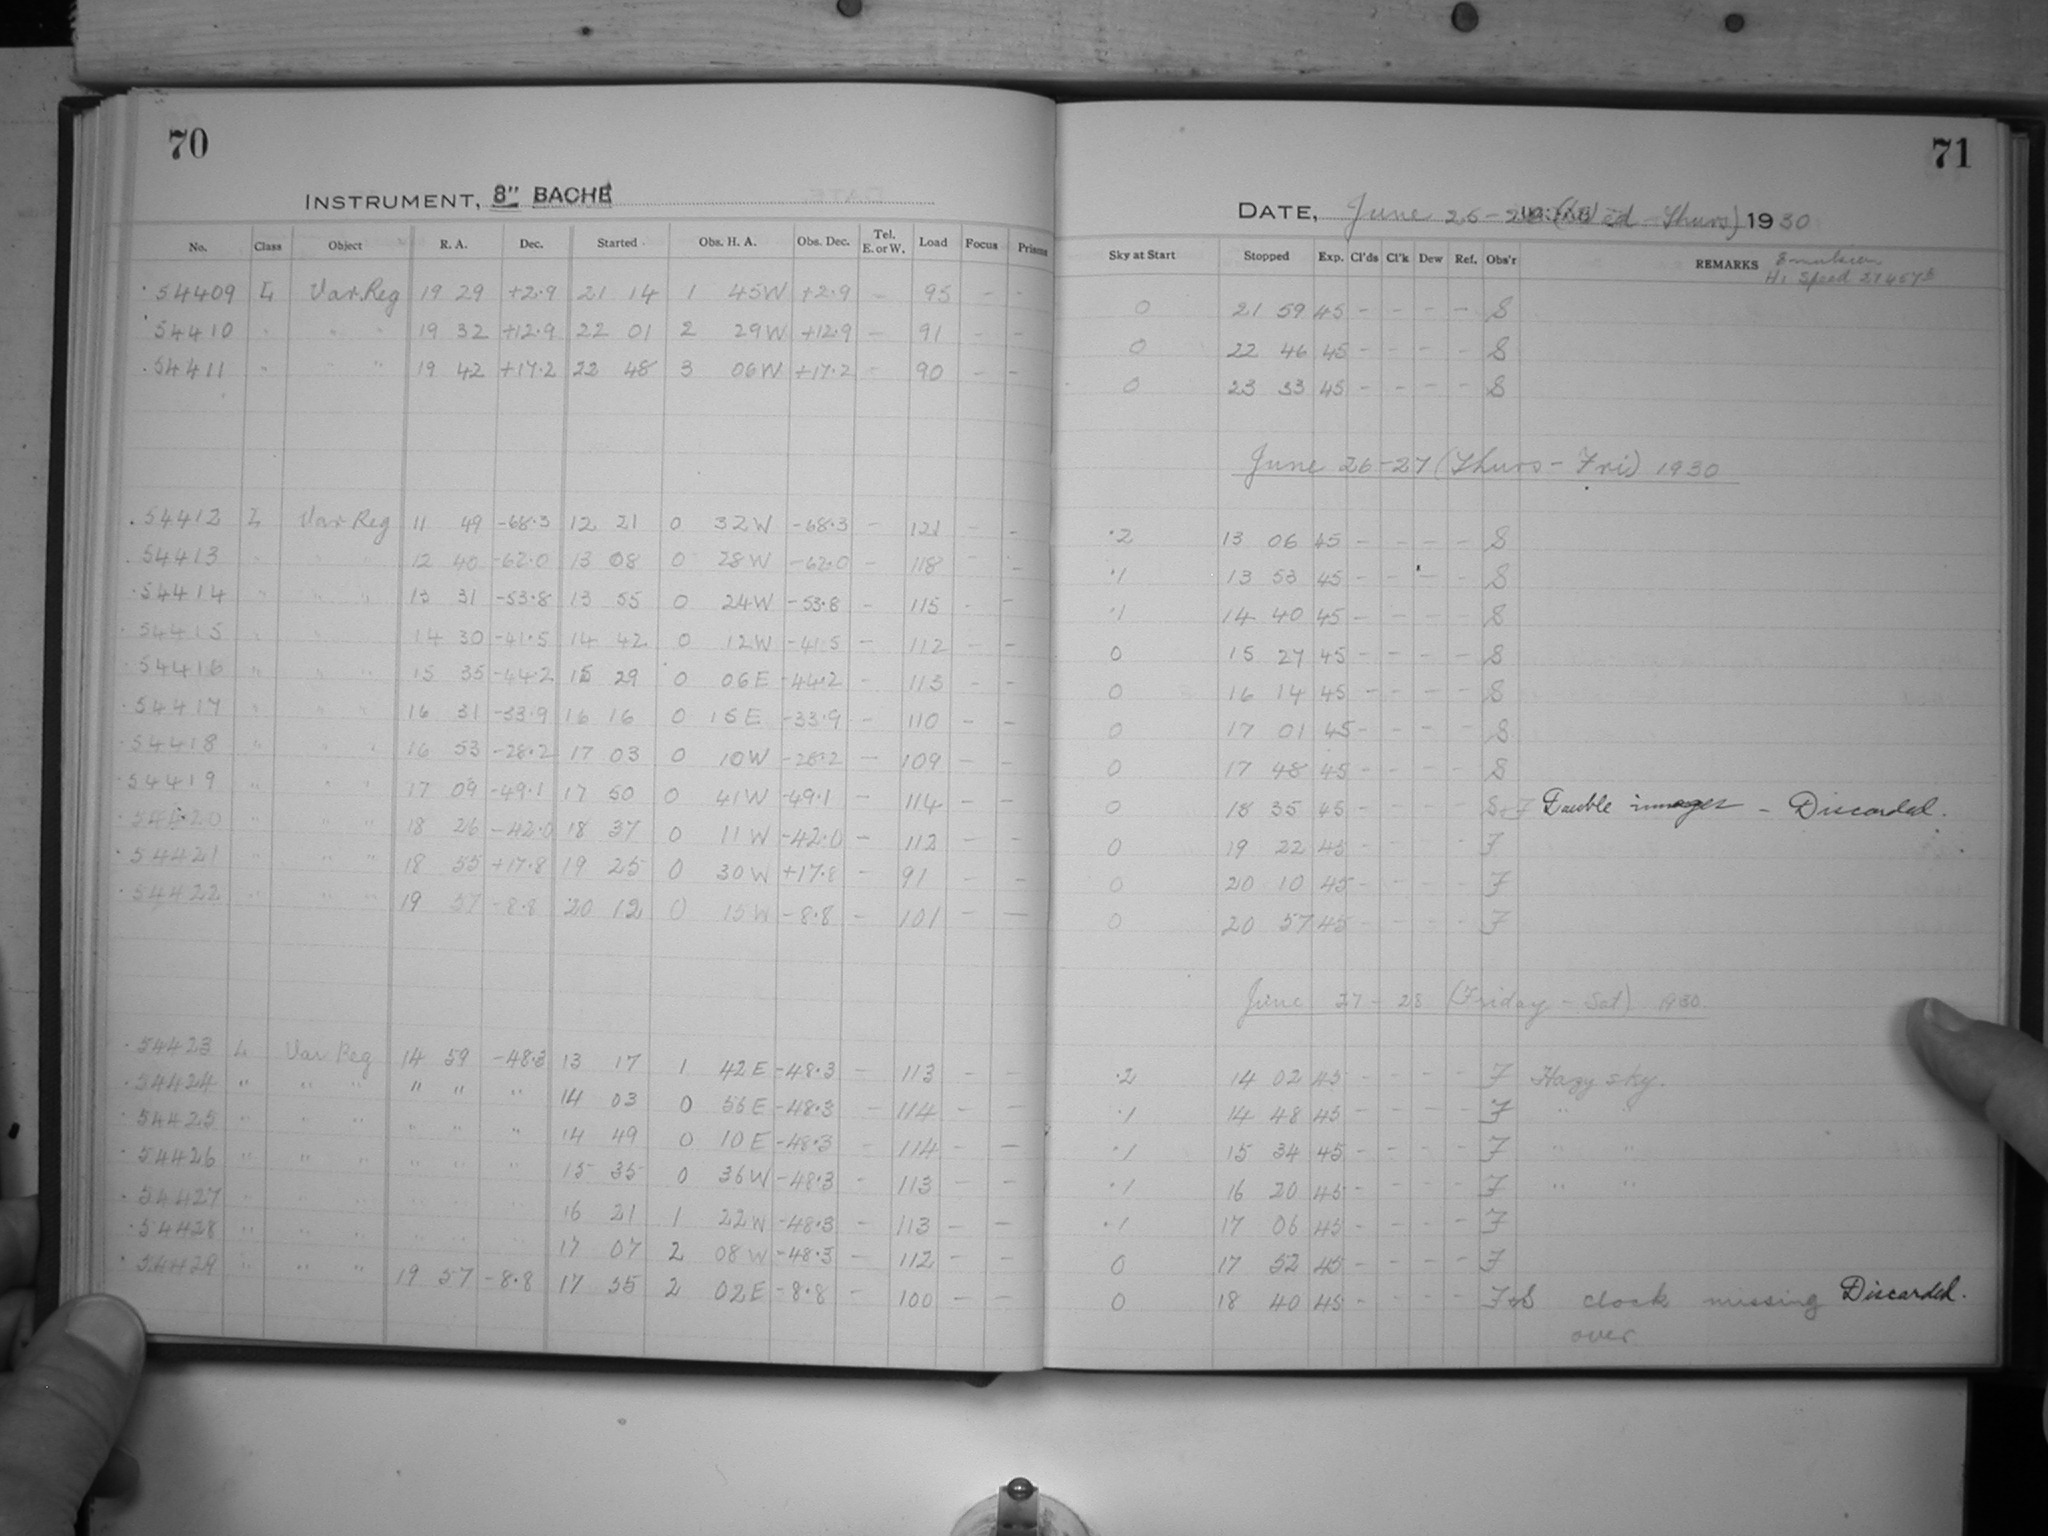 70
INSTRUMENT, 8" BACHE
No. Class Object R. A. Dec. Started Obs. H. A. Obs. Dec. Tel. E. or W. Load Focus Prisms
54409 L Var Reg 19 29 +2.9 21 14 1 45W +2.9 - 95 - -
54410 " " " 19 32 +12.9 22 01 2 29W +12.9 - 91 - -
54411 " " " 19 42 +17.2 22 48 3 06W +17.2 - 90 - -
54412 L Var Reg 11 49 -68.3 12 21 0 32W -68.3 - 121 - -
54413 " " " 12 40 -62.0 13 08 0 28W -62.0 - 118 - -
54414 " " " 13 31 -53.8 13 55 0 24W -53.8 - 115 - -
54415 " " " 14 30 -41.5 14 42 0 12W -41.5 - 112 - -
54416 " " " 15 35 -44.2 15 29 0 06E -44.2 - 113 - -
54417 " " " 16 31 -33.9 16 16 0 15E -33.9 - 110 - -
54418 " " " 16 53 -28.2 17 03 0 10W -28.2 - 109 - -
54419 " " " 17 09 -49.1 17 50 0 41W -49.1 - 114 - -
54420 " " " 18 26 -42.0 18 37 0 11W -42.0 - 112 - -
54421 " " " 18 55 +17.8 19 25 0 30W +17.8 - 91 - -
54422 " " " 19 57 -8.8 20 12 0 15W -8.8 - 101 - -
54423 L Var Reg 14 59 -48.3 13 17 1 42E -48.3 - 113 - -
54424 " " " " " " 14 03 0 56E -48.3 - 114 - -
54425 " " " " " " 14 49 0 10E -48.3 - 114 - -
54426 " " " " " " 15 35 0 36W -48.3 - 113 - -
54427 " " " " " " 16 21 1 22W -48.3 - 113 - -
54428 " " " " " " 17 07 2 08W -48.3 - 112 - -
54429 " " " 19 57 -8.8 17 55 2 02E -8.8 - 100 - -
71
DATE, June 25-26 (Wed - Thurs) 1930
Sky at Start Stopped Exp. Cl'ds Cl'k Dew Ref. Obs'r REMARKS Emulsion
Hi Speed
0 21 59 45 - - - - S
0 22 46 45 - - - - S
0 23 33 45 - - - - S
June 26-27 (Thurs - Fri) 1930
.2 13 06 45 - - - - S
.1 13 53 45 - - - - S
.1 14 40 45 - - - - S
0 15 27 45 - - - - S
0 16 14 45 - - - - S
0 17 01 45 - - - - S
0 17 48 45 - - - - S
0 18 35 45 - - - - S&F Double images - Discarded.
0 19 22 45 - - - - F
0 20 10 45 - - - - F
0 20 57 45 - - - - F
June 27-28 (Friday - Sat) 1930.
.2 14 02 45 - - - - F Hazy sky.
.1 14 48 45 - - - - F " "
.1 15 34 45 - - - - F " "
.1 16 20 45 - - - - F " "
.1 17 06 45 - - - - F
0 17 52 45 - - - - F
0 18 40 45 - - - - F&S clock missing Discarded.
over